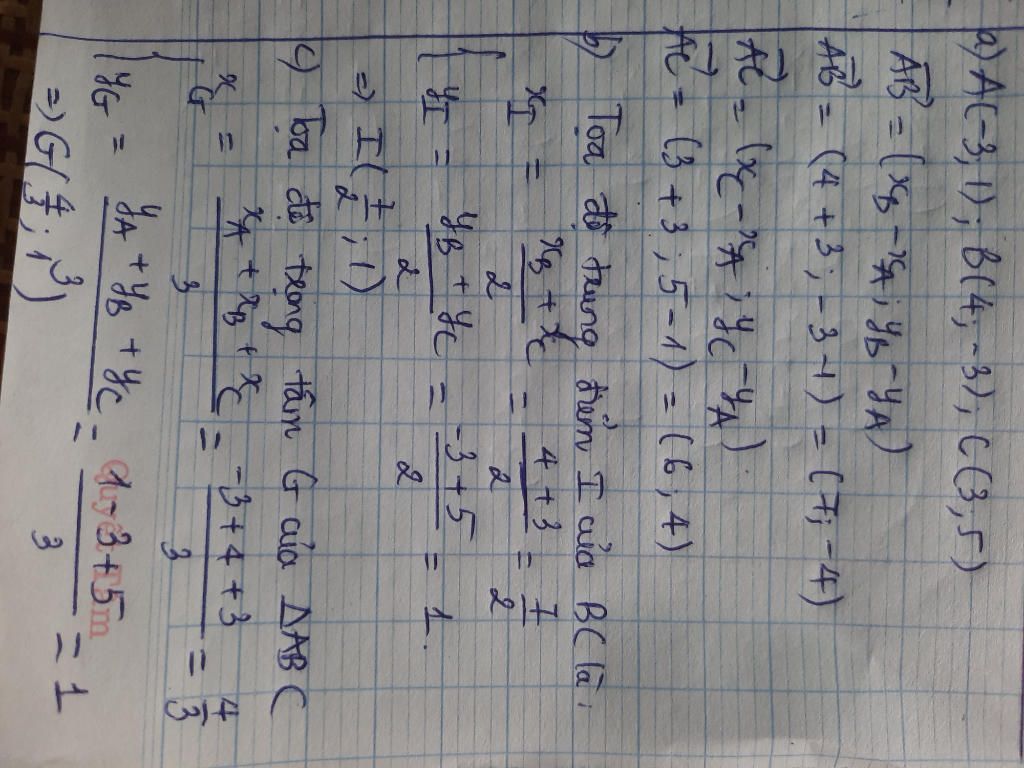 a) A(-3, 1); B(4, -3); C(3, 5)
AB = (xB - xA; yB - yA)
AB = (4 + 3; -3 - 1) = (7; -4)
AC = (xC - xA; yC - yA)
AC = (3 + 3; 5 - 1) = (6; 4)
b) Tọa độ trung điểm I của BC là:
xI = (xB + xC)/2 = (4 + 3)/2 = 7/2
yI = (yB + yC)/2 = (-3 + 5)/2 = 1.
=> I(7/2; 1)
c) Tọa độ trọng tâm G của ΔABC
xG = (xA + xB + xC)/3 = (-3 + 4 + 3)/3 = 4/3
yG = (yA + yB + yC)/3 = (1 - 3 + 5)/3 = 1
=> G(4/3; 1)